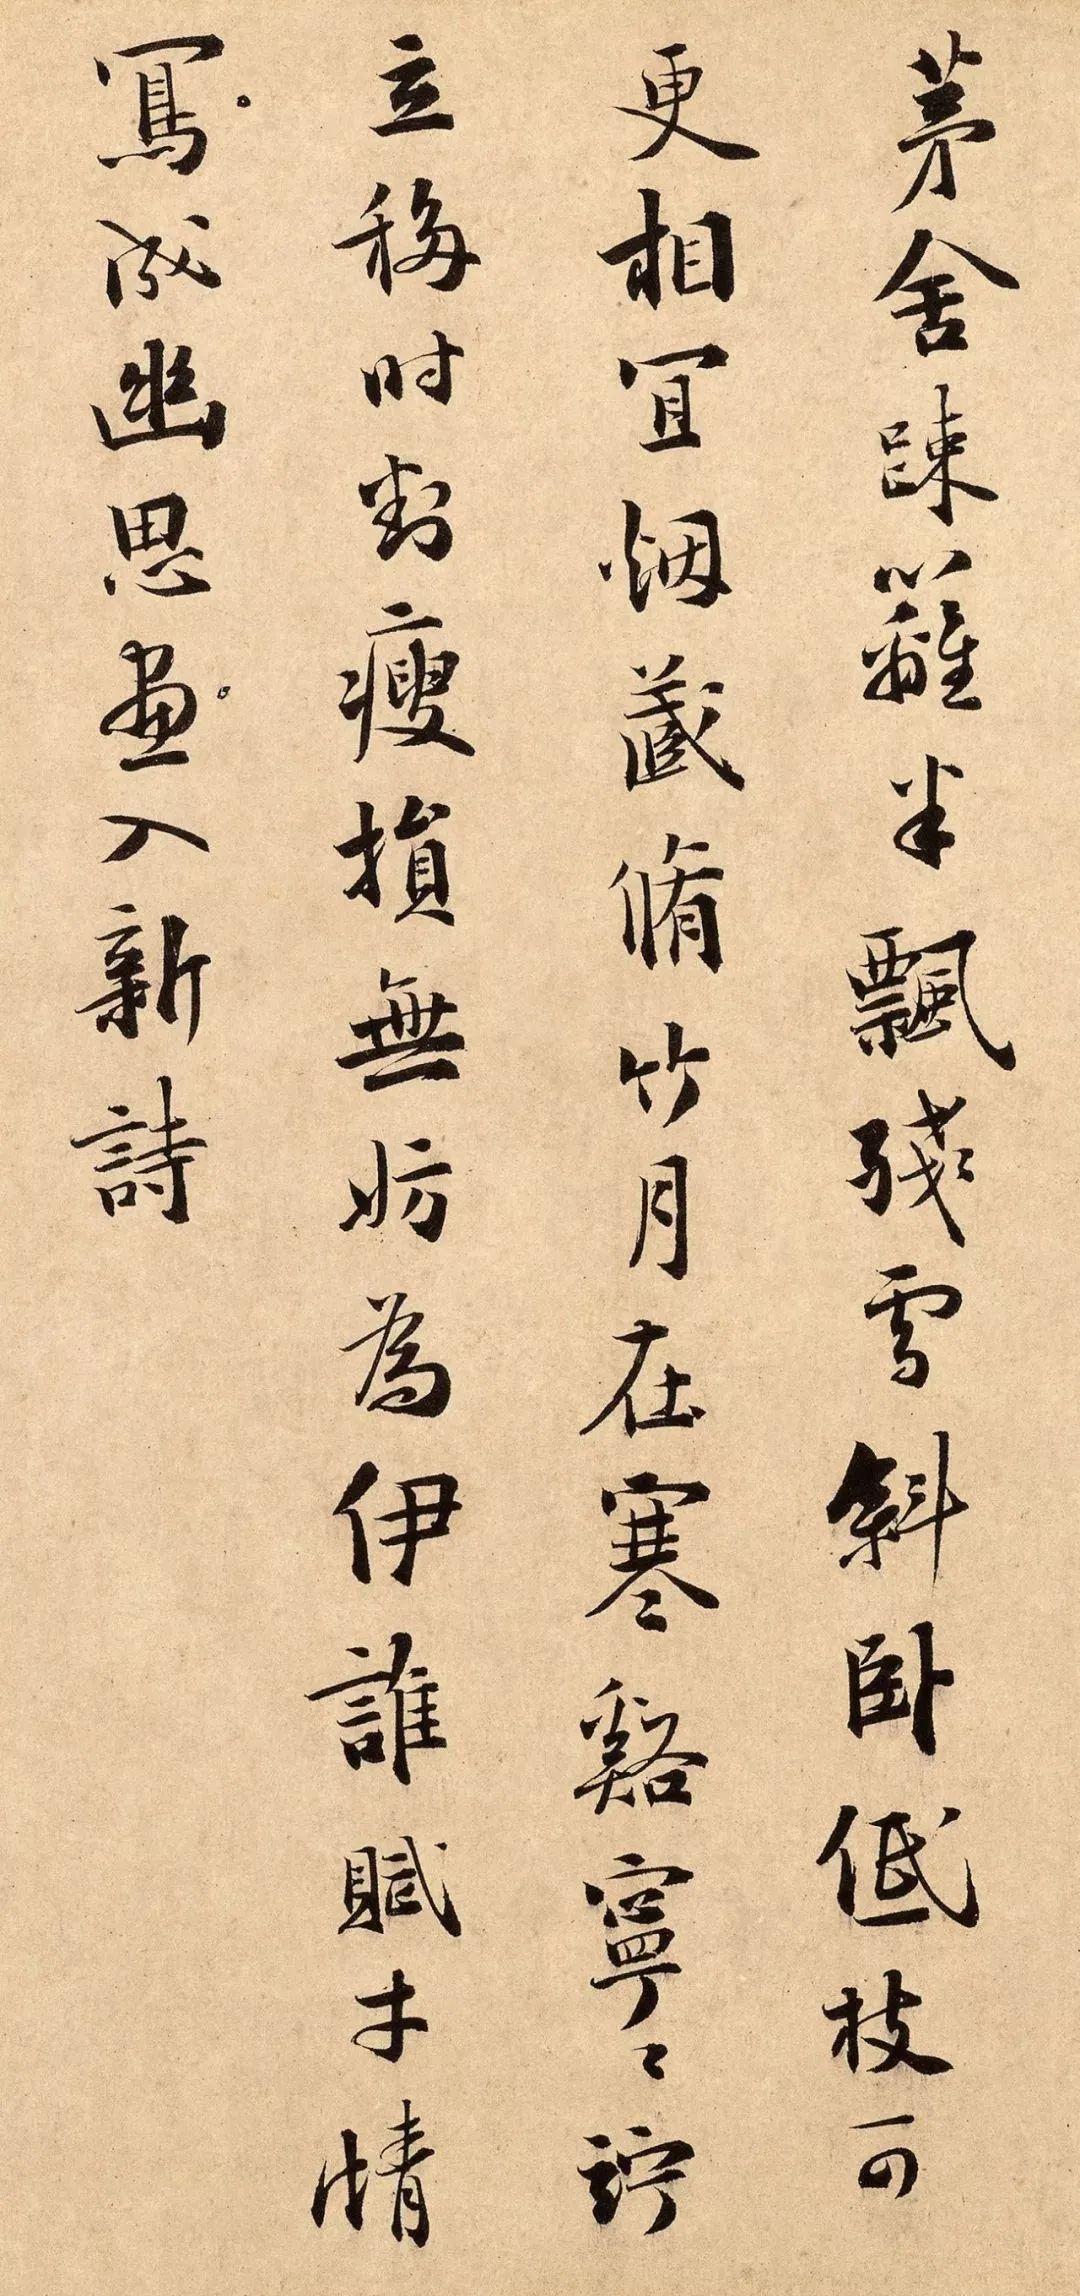 茅舍疎籬半飄殘雪斜卧低枝可
更相宜烟蔵脩竹月在寒谿寧〻竚
立移时對瘦損無妨為伊誰賦才情
寫成幽思畫入新詩